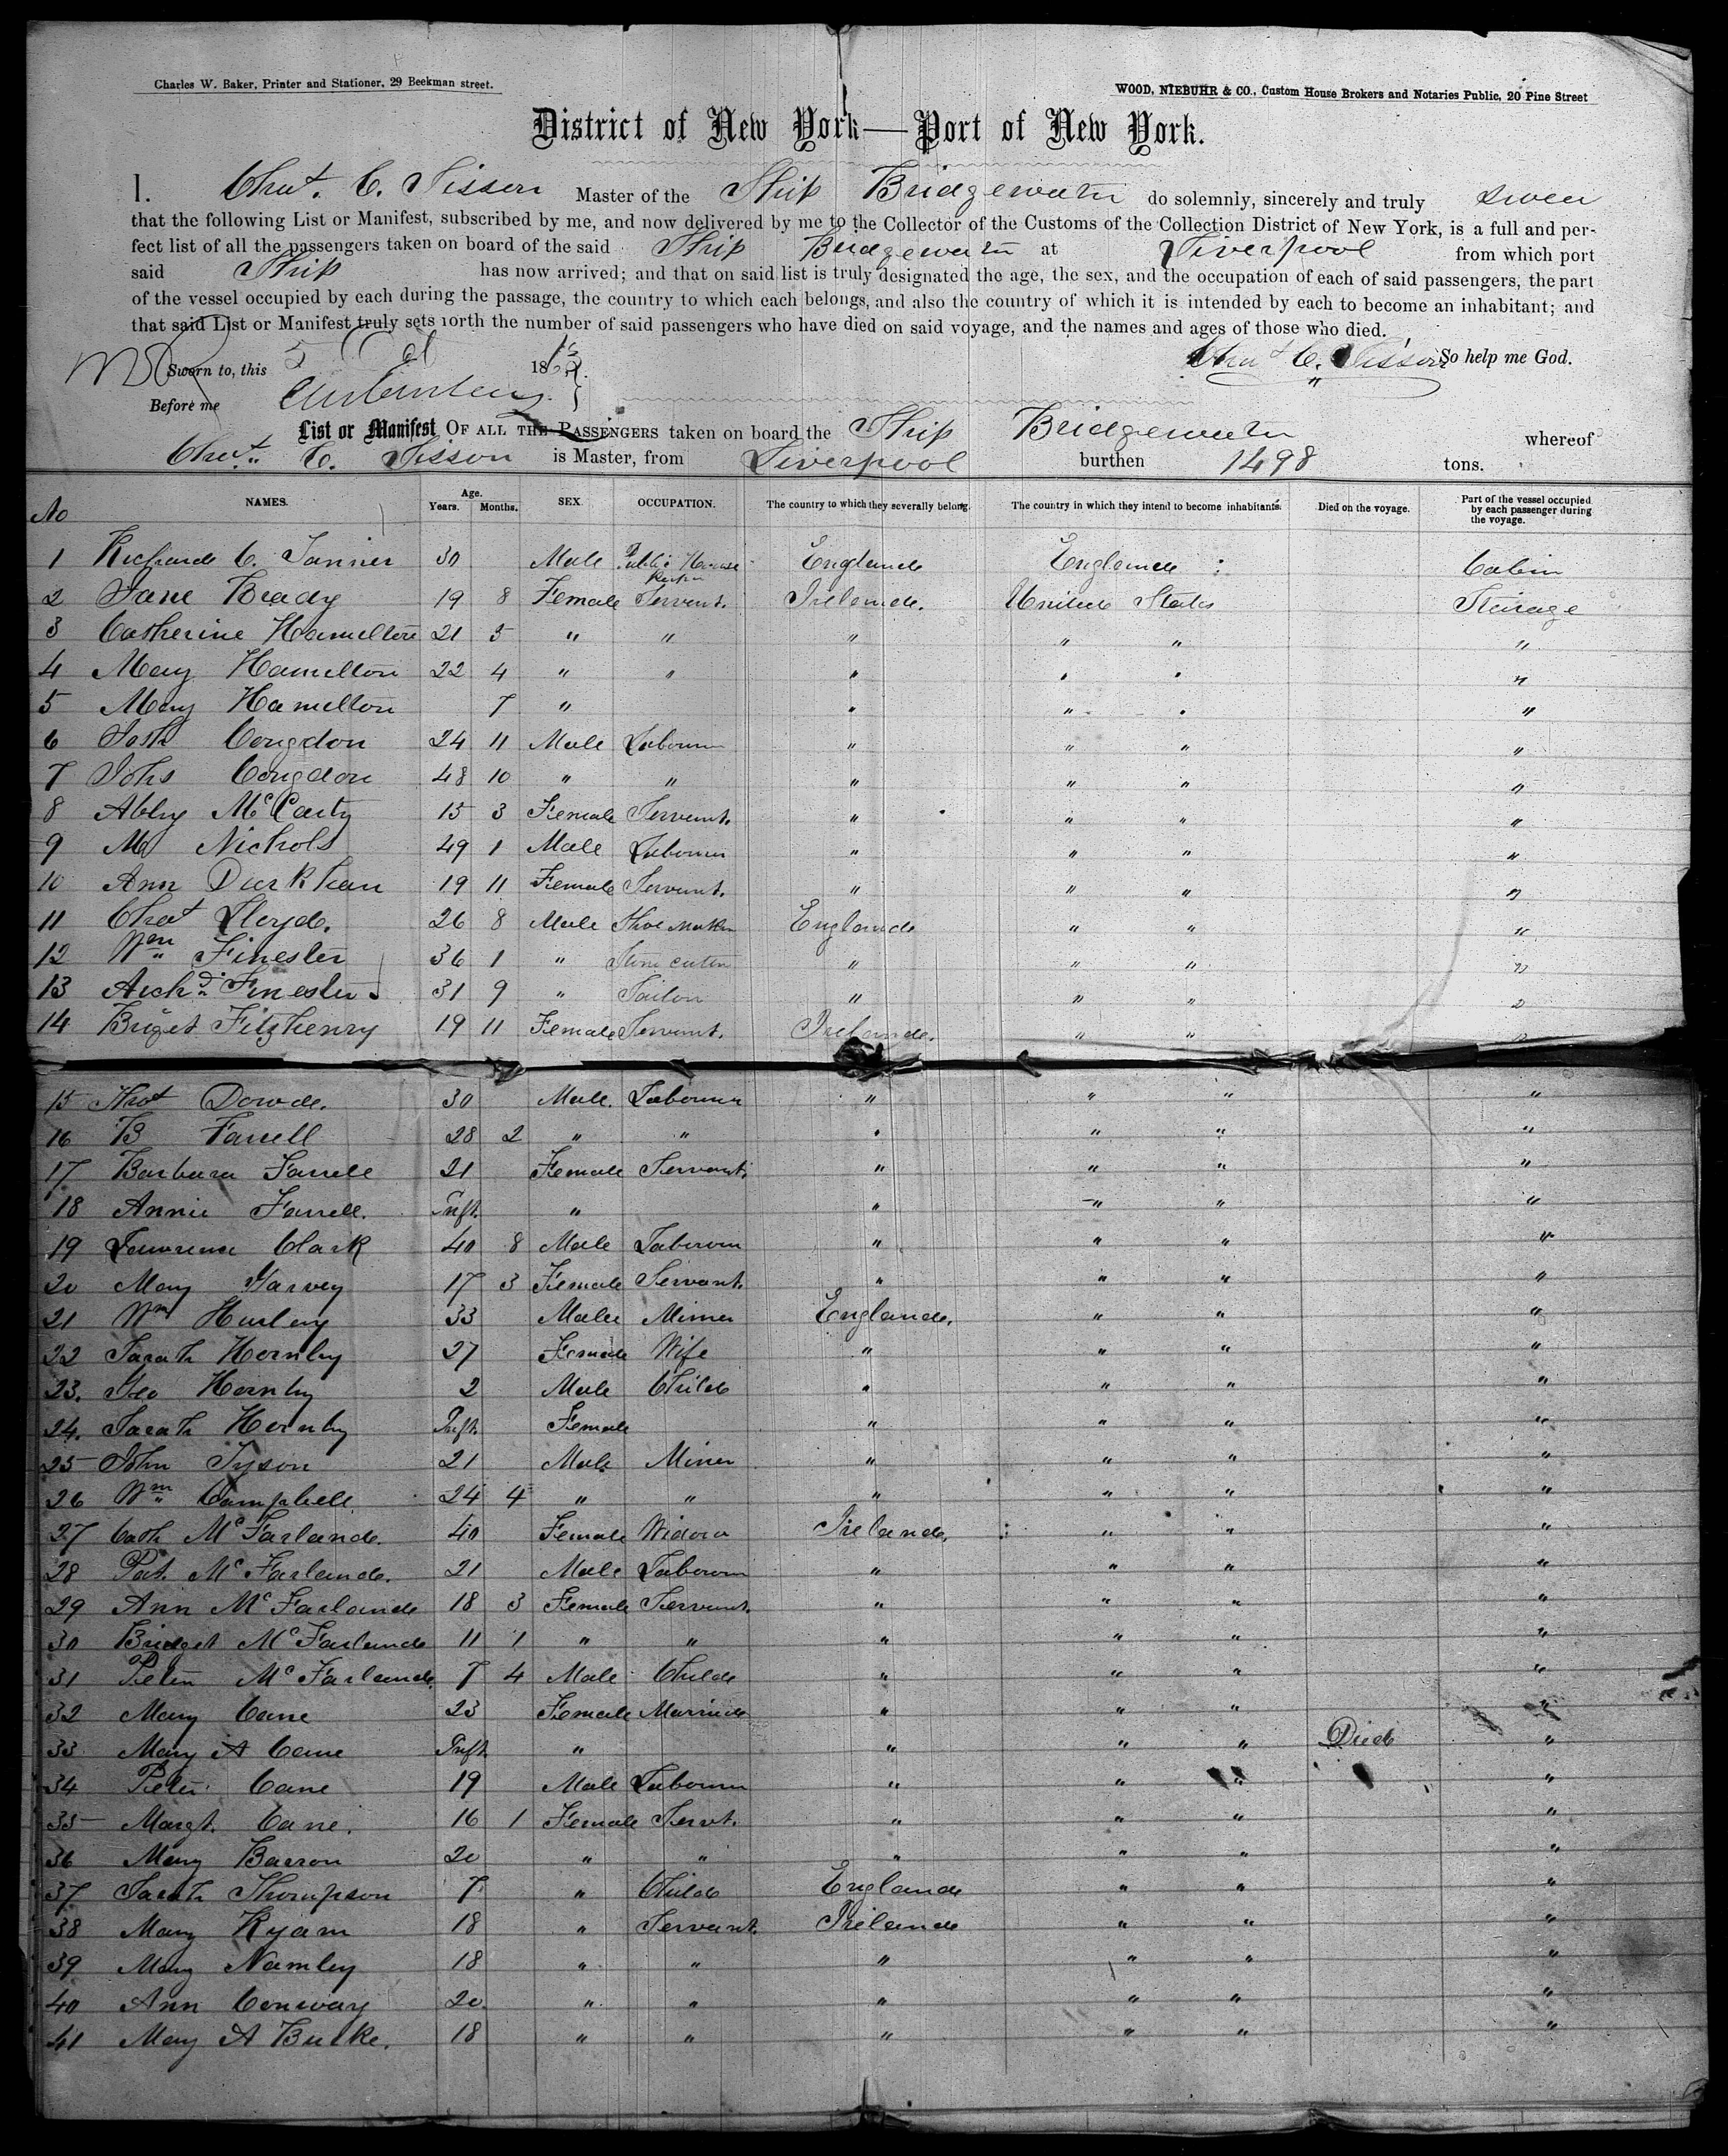 Charles W. Baker, Printer and Stationer, 29 Beekman street.
WOOD, NIEBUHR & CO., Custom House Brokers and Notaries Public, 20 Pine Street
District of New York—Port of New York.
I. Chas. C. Sisson Master of the Ship Bridgewater do solemnly, sincerely and truly swear
that the following List or Manifest, subscribed by me, and now delivered by me to the Collector of the Customs of the Collection District of New York, is a full and per-
fect list of all the passengers taken on board of the said Ship Bridgewater at Liverpool from which port
said Ship has now arrived; and that on said list is truly designated the age, the sex, and the occupation of each of said passengers, the part
of the vessel occupied by each during the passage, the country to which each belongs, and also the country of which it is intended by each to become an inhabitant; and
that said List or Manifest truly sets forth the number of said passengers who have died on said voyage, and the names and ages of those who died.
Sworn to, this 5 186 Chas C. Sisson So help me God.
Before me
List or Manifest OF ALL THE PASSENGERS taken on board the Ship Bridgewater whereof
Chas. C. Sisson is Master, from Liverpool burthen 1498 tons.
No NAMES. Age. Years. Months. SEX. OCCUPATION. The country to which they severally belong. The country in which they intend to become inhabitants. Died on the voyage. Part of the vessel occupied by each passenger during the voyage.
1 Richard C. Tanner 30 Male Public House Keeper England England Cabin
2 Jane Brady 19 8 Female Servant. Ireland. United States Steerage
3 Catherine Hamilton 21 5 " " " " " "
4 Mary Hamilton 22 4 " " " " " "
5 Mary Hamilton 7 " " " " "
6 Josh Congdon 24 11 Male Labourer " " " "
7 Johs Congdon 48 10 " " " " " "
8 Abby McCarty 15 3 Female Servant. " " " "
9 M Nichols 49 1 Male Labourer " " " "
10 Ann Durkhan 19 11 Female Servant. " " " "
11 Chas Lloyd. 26 8 Male Shoe Maker England " " "
12 Wm Finester 36 1 " Stone cutter " " " "
13 Archd Finester 31 9 " Tailor " " " "
14 Briget Fitzhenry 19 11 Female Servant. Ireland. " " "
15 Thos Dowd. 30 Male. Labourer " " " "
16 B Farrell 28 2 " " " " " "
17 Barbara Farrell 21 Female Servant. " " " "
18 Annie Farrell. Inft. " " " " "
19 Lawrence Clark 40 8 Male Labourer " " " "
20 Mary Garvey 17 3 Female Servant. " " " "
21 Wm Hurley 33 Male Miner England. " " "
22 Sarah Hornby 27 Female Wife " " " "
23. Geo Hornby 2 Male Child " " " "
24. Sarah Hornby Inft. Female " " " "
25 John Tyson 21 Male Miner " " " "
26 Wm Campbell 24 4 " " " " " "
27 Cath McFarland. 40 Female Widow Ireland. " " "
28 Pat. McFarland. 21 Male Labourer " " " "
29 Ann McFarland 18 3 Female Servant. " " " "
30 Bridget McFarland 11 1 " " " " " "
31 Peter McFarland. 7 4 Male Child " " " "
32 Mary Cane 23 Female Married " " " "
33 Mary A Cane Inft " " " " Died "
34 Peter Cane 19 Male Labourer " " " "
35 Margt. Cane. 16 1 Female Servt. " " " "
36 Mary Barron 20 " " " " " "
37 Sarah Thompson 7 " Child England " " "
38 Mary Ryam 18 " Servant. Ireland " " "
39 Mary Namley 18 " " " " " "
40 Ann Conway 20 " " " " " "
41 Mary A Burke. 18 " " " " " "